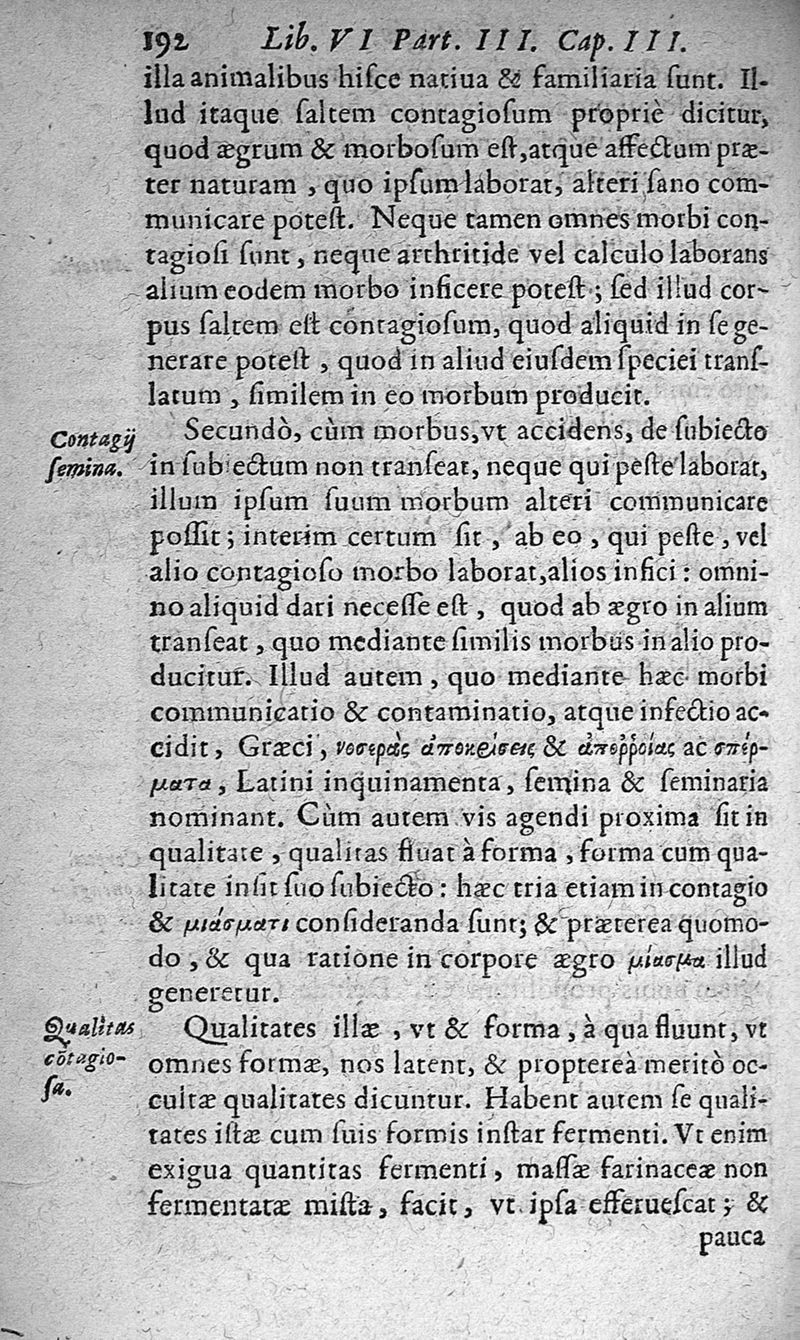 192 Lib. VI Part. III. Cap. III.
illa animalibus hiſce natiua & familiaria ſunt. Il-
lud itaque ſaltem contagioſum propriè dicitur,
quod ægrum & morboſum eſt, atque affectum præ-
ter naturam, quo ipſum laborat, alteri ſano com-
municare poteſt. Neque tamen omnes morbi con-
tagioſi ſunt, neque arthritide vel calculo laborans
alium eodem morbo inficere poteſt; ſed illud cor-
pus ſaltem eſt contagioſum, quod aliquid in ſe ge-
nerare poteſt, quod in aliud eiuſdem ſpeciei tranſ-
latum, ſimilem in eo morbum producit.
Contagij
ſemina.
Secundò, cùm morbus, vt accidens, de ſubiecto
in ſubiectum non tranſeat, neque qui peſte laborat,
illum ipſum ſuum morbum alteri communicare
poſſit; interim certum ſit, ab eo, qui peſte, vel
alio contagioſo morbo laborat, alios infici: omni-
no aliquid dari neceſſe eſt, quod ab ægro in alium
tranſeat, quo mediante ſimilis morbus in alio pro-
ducitur. Illud autem, quo mediante hæc morbi
communicatio & contaminatio, atque infectio ac-
cidit, Græci, νοσερὰς ἀποκρίσεις & ἀποῤῥοίας ac σπέρ-
ματα, Latini inquinamenta, ſemina & ſeminaria
nominant. Cùm autem vis agendi proxima ſit in
qualitate, qualitas fluat à forma, forma cum qua-
litate inſit ſuo ſubiecto: hæc tria etiam in contagio
& μιάσματι conſideranda ſunt; & præterea quomo-
do, & qua ratione in corpore ægro μίασμα illud
generetur.
Qualitas
cõtagio-
ſa.
Qualitates illæ, vt & forma, à qua fluunt, vt
omnes formæ, nos latent, & proptereà meritò oc-
cultæ qualitates dicuntur. Habent autem ſe quali-
tates iſtæ cum ſuis formis inſtar fermenti. Vt enim
exigua quantitas fermenti, maſſæ farinaceæ non
fermentatæ miſta, facit, vt ipſa efferueſcat; &
pauca